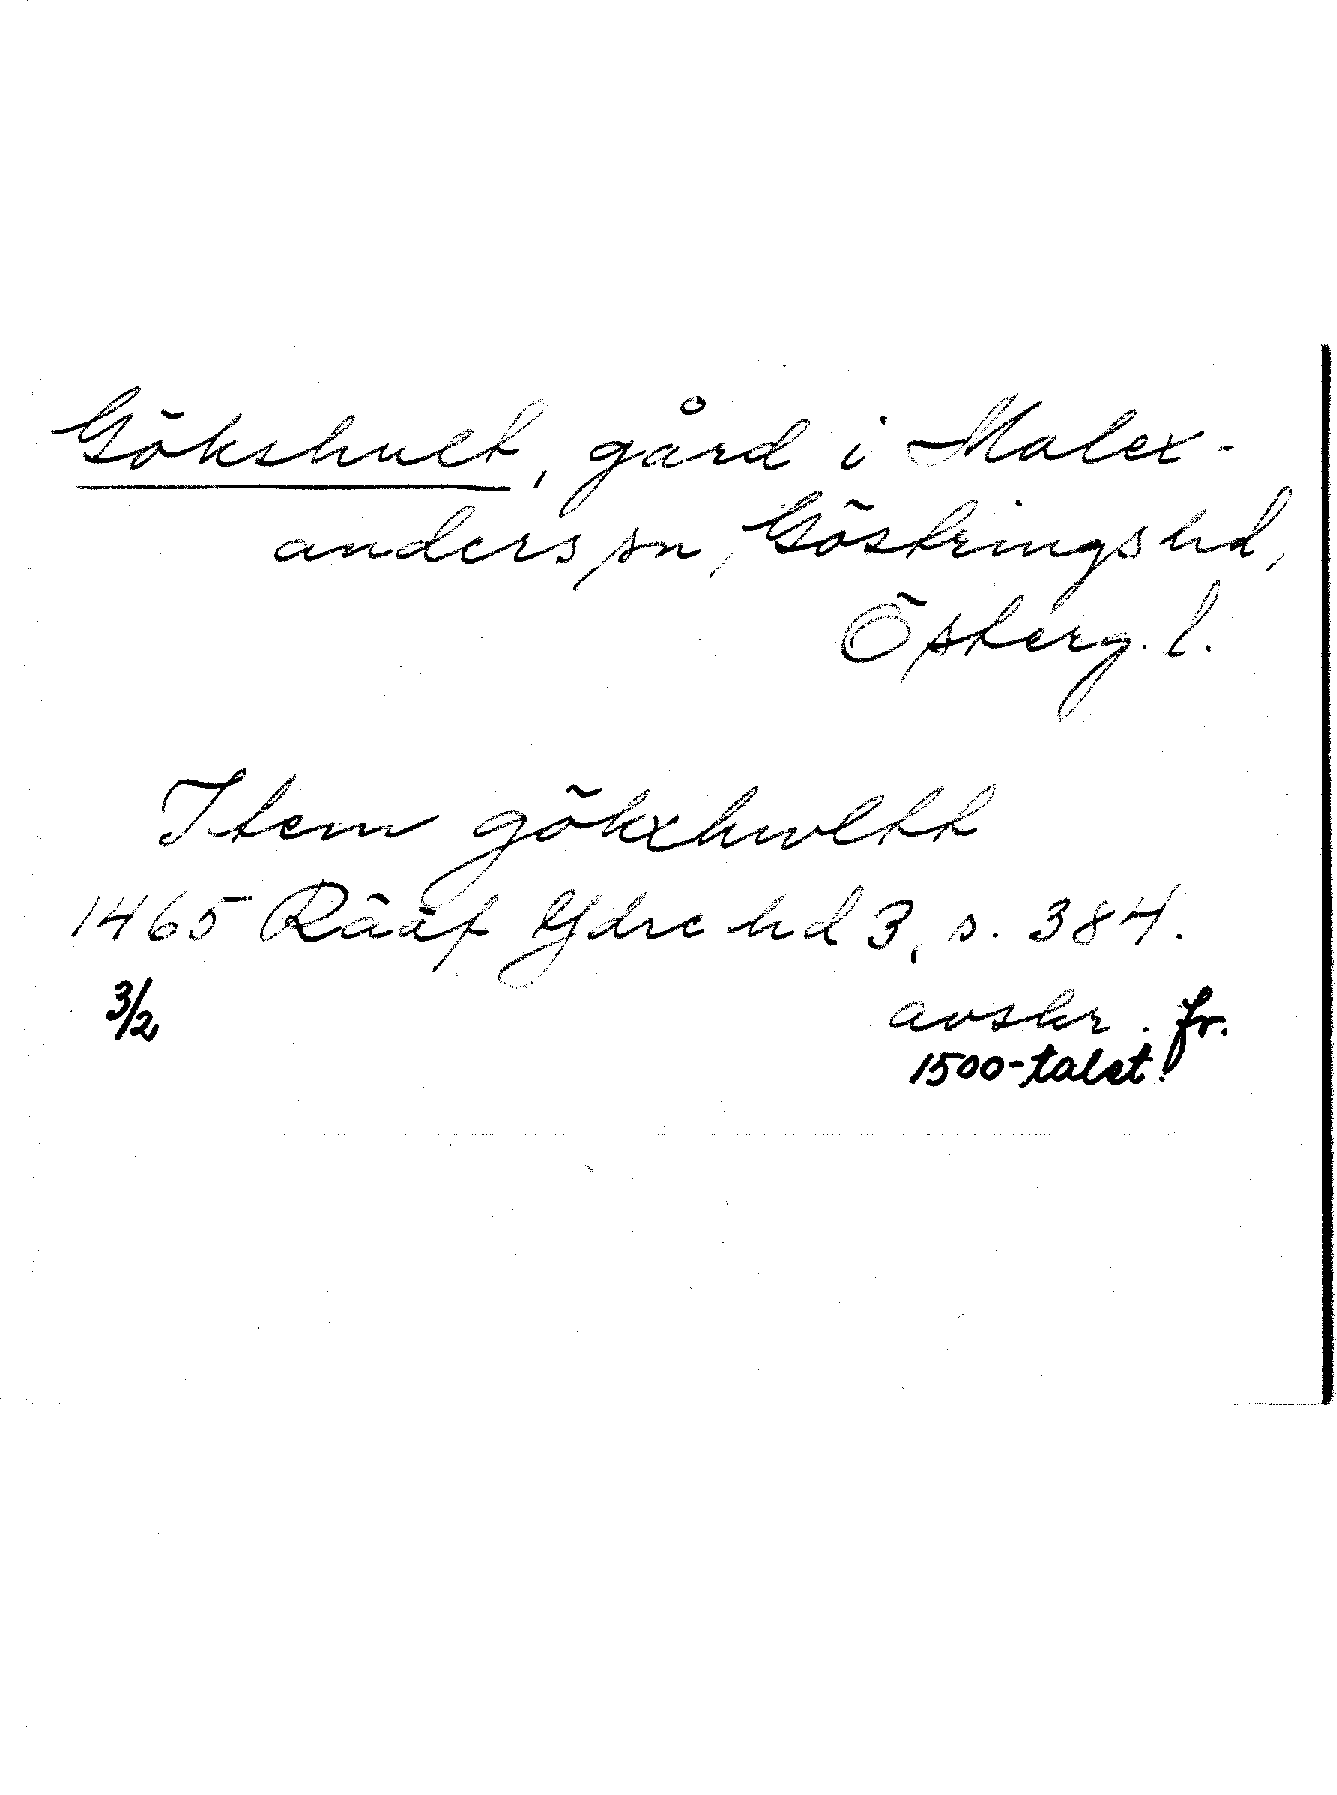 Gökshult, gård i Malex-
anders sn, Göstrings hd,
Österg. l.
Item gökxhwltt
1465 Rääf Ydre hd 3, s. 384.
3/2 avskr. fr.
1500-talet.